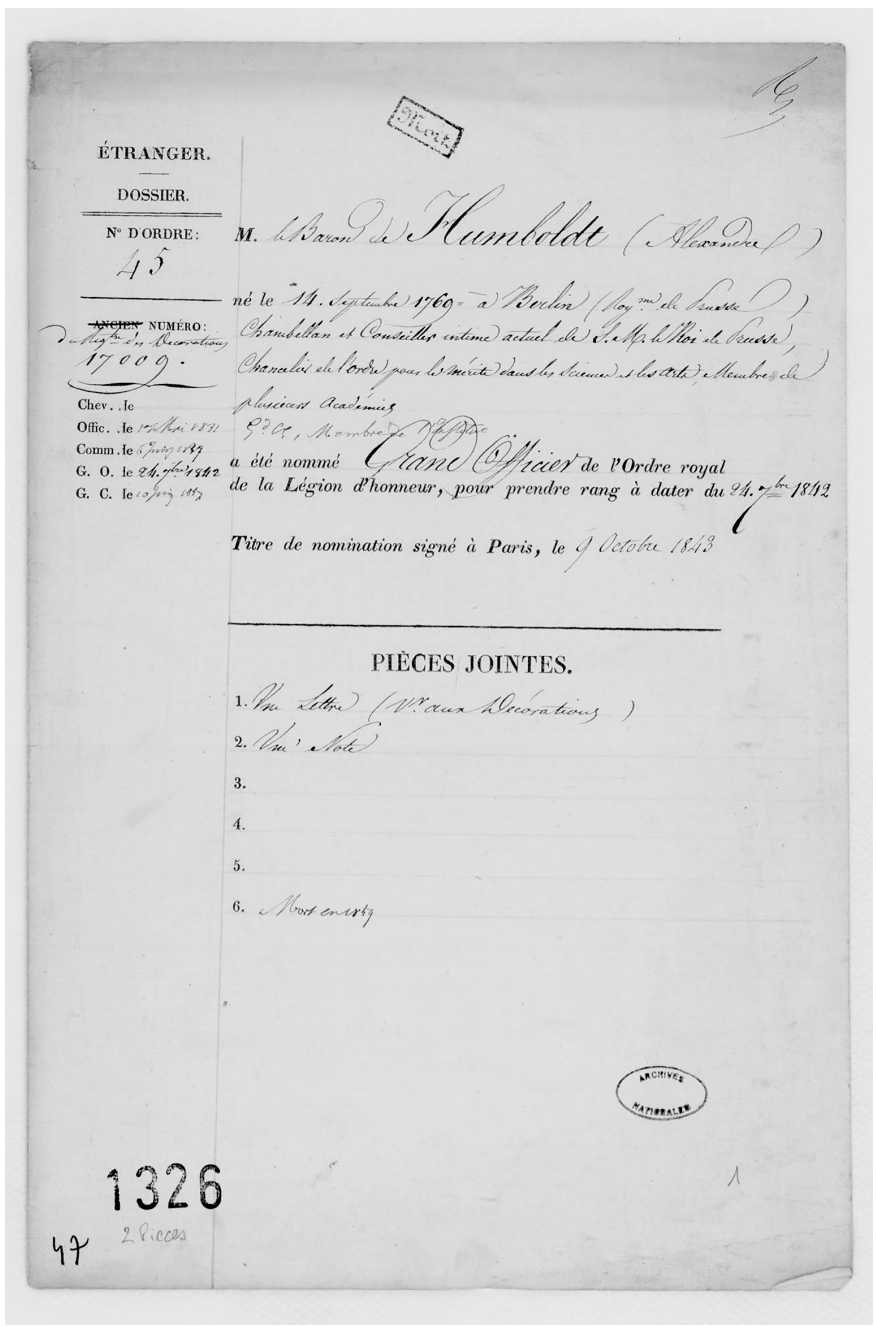 Mort
ÉTRANGER.
DOSSIER.
N° D'ORDRE:
45
ANCIEN NUMÉRO:
du Regtre des Décorations
17009.
Chev. .le
Offic. .le 1er Mai 1831
Comm. le 1837
G. O. le 24. 7bre 1842
G. C. le 10 1857
M. le Baron de Humboldt (Alexandre)
né le 14. Septembre 1769 = à Berlin (Roy.me de Prusse)
Chambellan et Conseiller intime actuel de S. M. le Roi de Prusse,
Chancelier de l'ordre pour le mérite dans les Sciences et les arts, Membre de
plusieurs Académies
Gd Cx, Membre de l'Institut
a été nommé Grand Officier de l'Ordre royal
de la Légion d'honneur, pour prendre rang à dater du 24. 7bre 1842
Titre de nomination signé à Paris, le 9 Octobre 1843
PIÈCES JOINTES.
1. Une Lettre (Vr aux Décorations)
2. Une Note
3.
4.
5.
6. Mort en 1859
ARCHIVES
NATIONALES
1
1326
2 Pièces
47